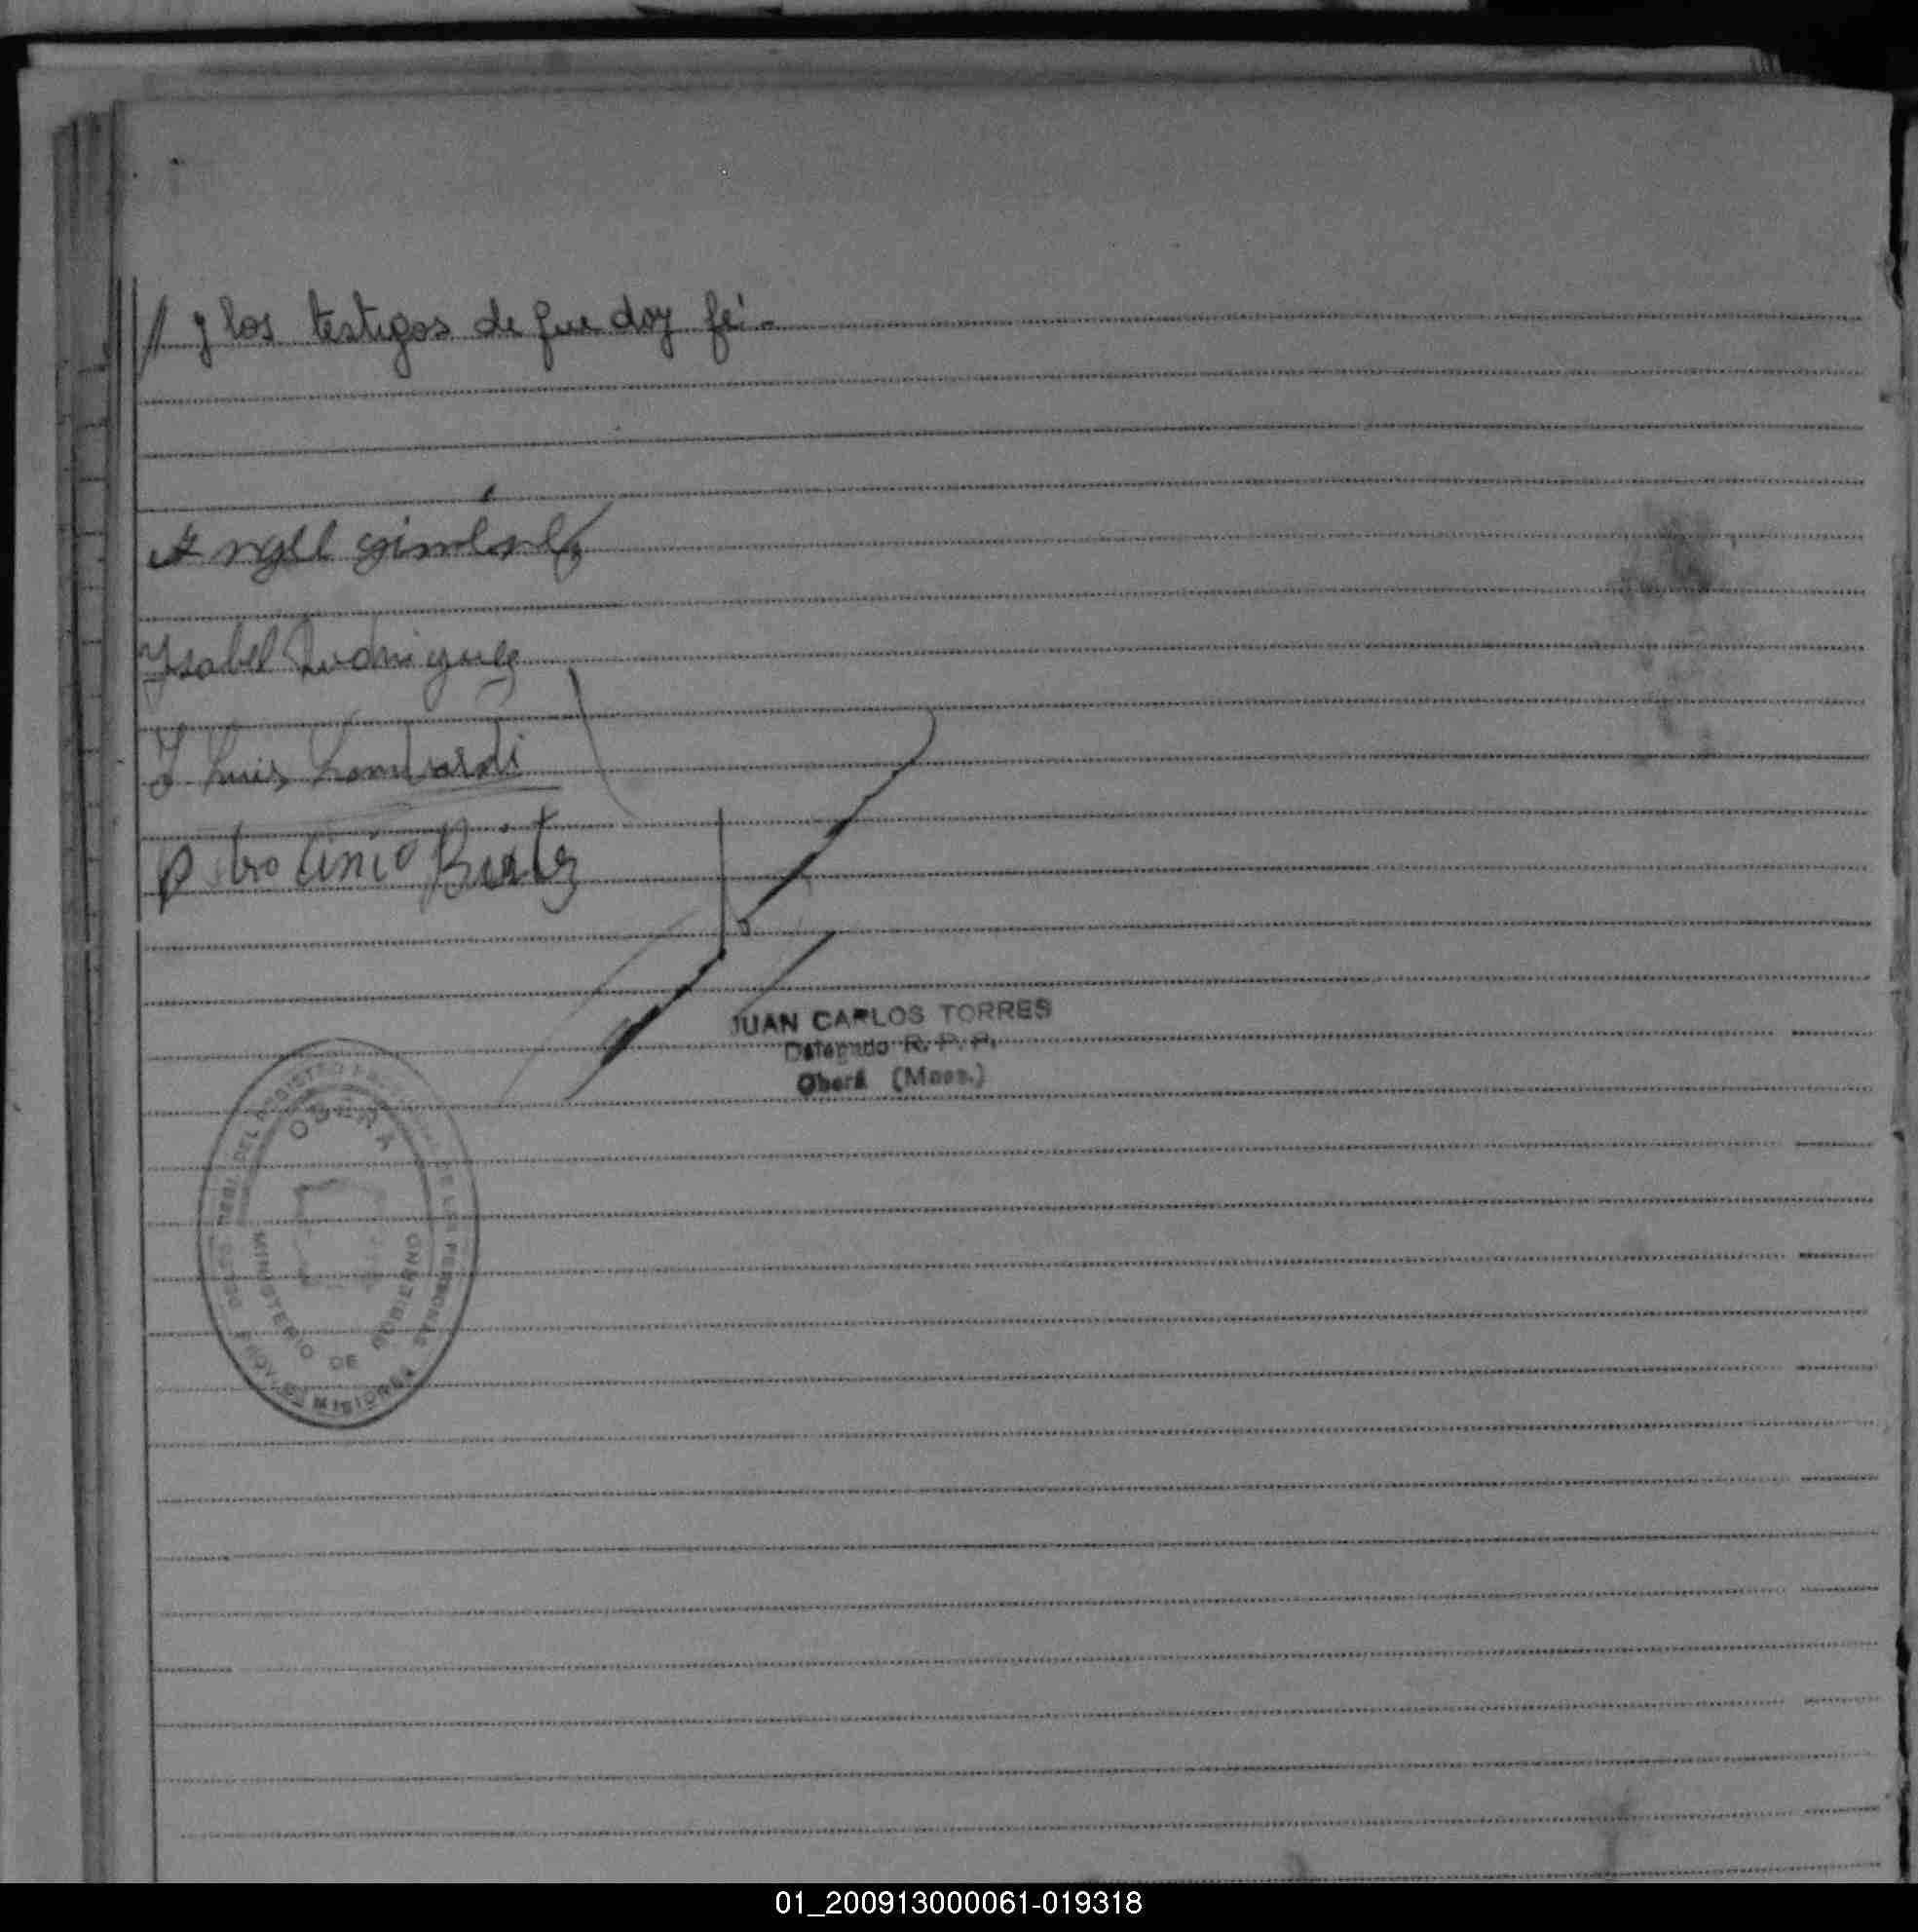 // y los testigos de que doy fé.-
Angel gimenez
Ysabel Rodriguez
J Luis Lombardi
Patrocinio
JUAN CARLOS TORRES
Delegado R. P. P.
Oberá (Mnes.)
DEL REGISTRO PROVINCIAL DE LAS PERSONAS
OBERA
MINISTERIO DE GOBIERNO
PROV. DE MISIONES
01_200913000061-019318